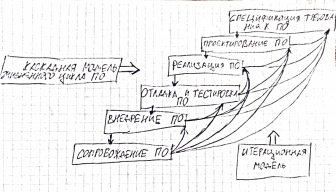 СПЕЦИФИКАЦИЯ ТРЕБОВА
НИЙ К ПО
ПРОЕКТИРОВАНИЕ ПО
КАСКАДНАЯ МОДЕЛЬ
ЖИЗНЕННОГО ЦИКЛА ПО
РЕАЛИЗАЦИЯ ПО
ОТЛАДКА И ТЕСТИРОВКА
ПО
ВНЕДРЕНИЕ ПО
СОПРОВОЖДЕНИЕ ПО
ИТЕРАЦИОННАЯ
МОДЕЛЬ